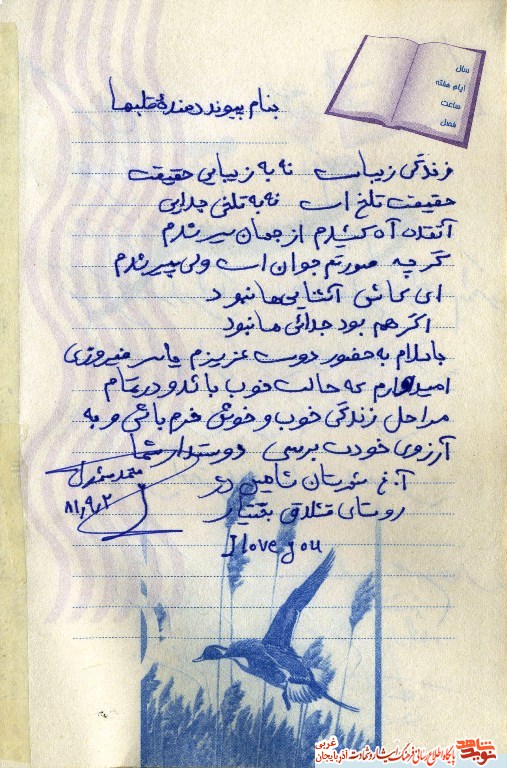 سال
ایام هفته
ساعت
فصل
بنام پیوند دهندهٔ قلبها
زندگی زیباست نه به زیبایی حقیقت
حقیقت تلخ است نه به تلخی جدایی
آنقدر آه کشیدم از جهان سیر شدم
گرچه صورتم جوان است ولی پیر شدم
ای کاش آشنایی ها نبود
اگر هم بود جدائی ها نبود
باسلام به حضور دوست عزیزم یاسر فیروزی
امیدوارم که حالت خوب باشد و در تمام
مراحل زندگی خوب و خوش خرم باشی و به
آرزوی خودت برسی دوستدار شما
محمد
۸۱٫۹٫۲
آ.غ شهرستان شاهین دژ
روستای قشلاق بختیار
I love you
نوید شاهد
پایگاه اطلاع رسانی فرهنگ ایثار و شهادت آذربایجان غربی